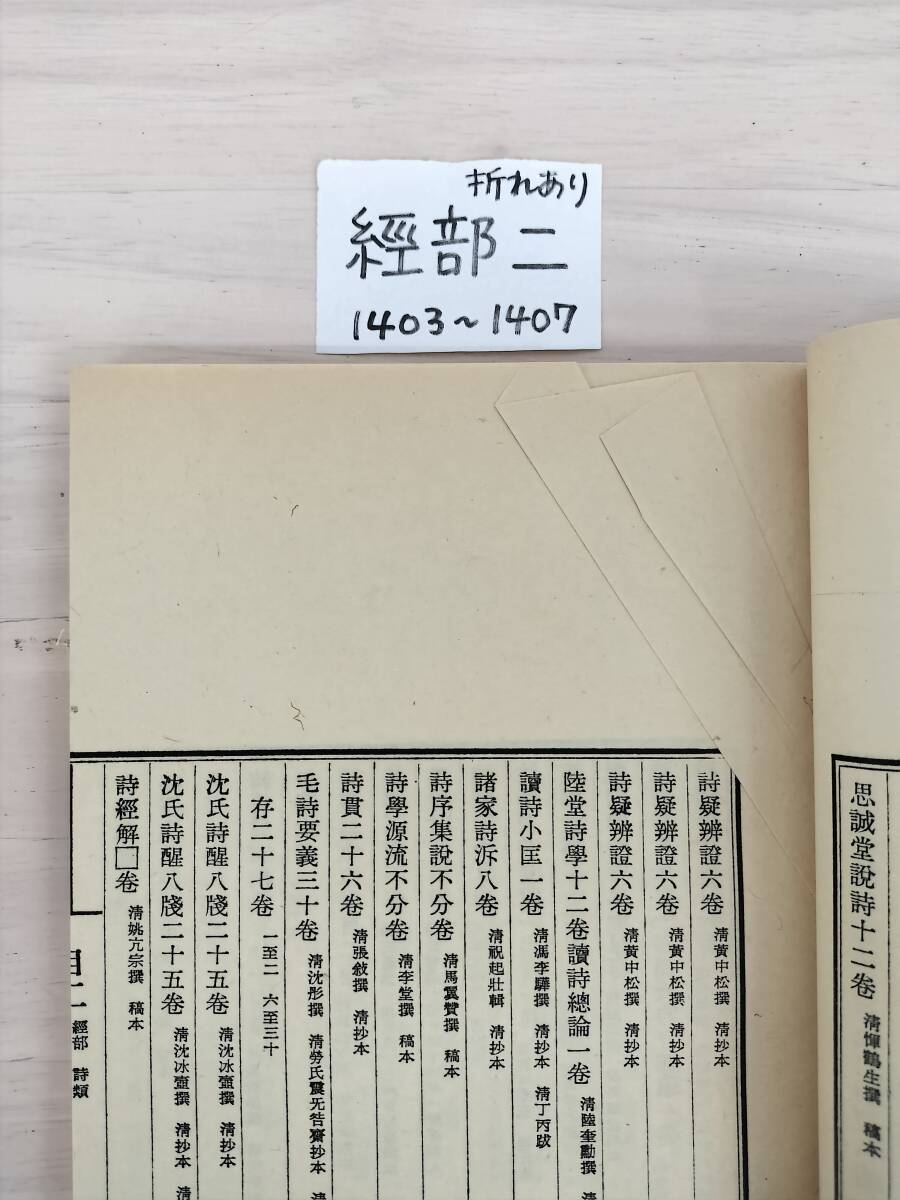 折れあり
經部二
1403~1407
思誠堂說詩十二卷 清惲鶴生撰 稿本
詩疑辨證六卷 清黃中松撰 清抄本
詩疑辨證六卷 清黃中松撰 清抄本
詩疑辨證六卷 清黃中松撰 清抄本
陸堂詩學十二卷讀詩總論一卷 清陸奎勳撰
讀詩小匡一卷 清馮李驊撰 清抄本 清丁丙跋
諸家詩泝八卷 清祝起壯輯 清抄本
詩序集說不分卷 清馬翼贊撰 稿本
詩學源流不分卷 清李堂撰 稿本
詩貫二十六卷 清張敍撰 清抄本
毛詩要義三十卷 清沈彤撰 清勞氏震无咎齋抄本 清
存二十七卷 一至二 六至三十
沈氏詩醒八牋二十五卷 清沈冰壺撰 清抄本
沈氏詩醒八牋二十五卷 清沈冰壺撰 清抄本 清
詩經解□卷 清姚亢宗撰 稿本
經部 詩類